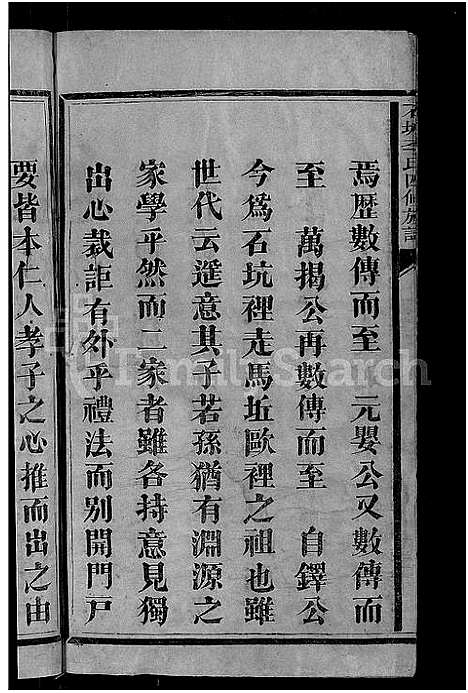 焉歷數傳而至　元嬰公又數傳而
至　萬揭公再數傳而至　自鐸公
今爲石坑裡走馬坵歐裡之祖也雖
世代云遥意其子若孫猶有淵源之
家學乎然而二家者雖各持意見獨
出心裁詎有外乎禮法而别開門戸
要皆本仁人孝子之心推而出之由
FamilySearch